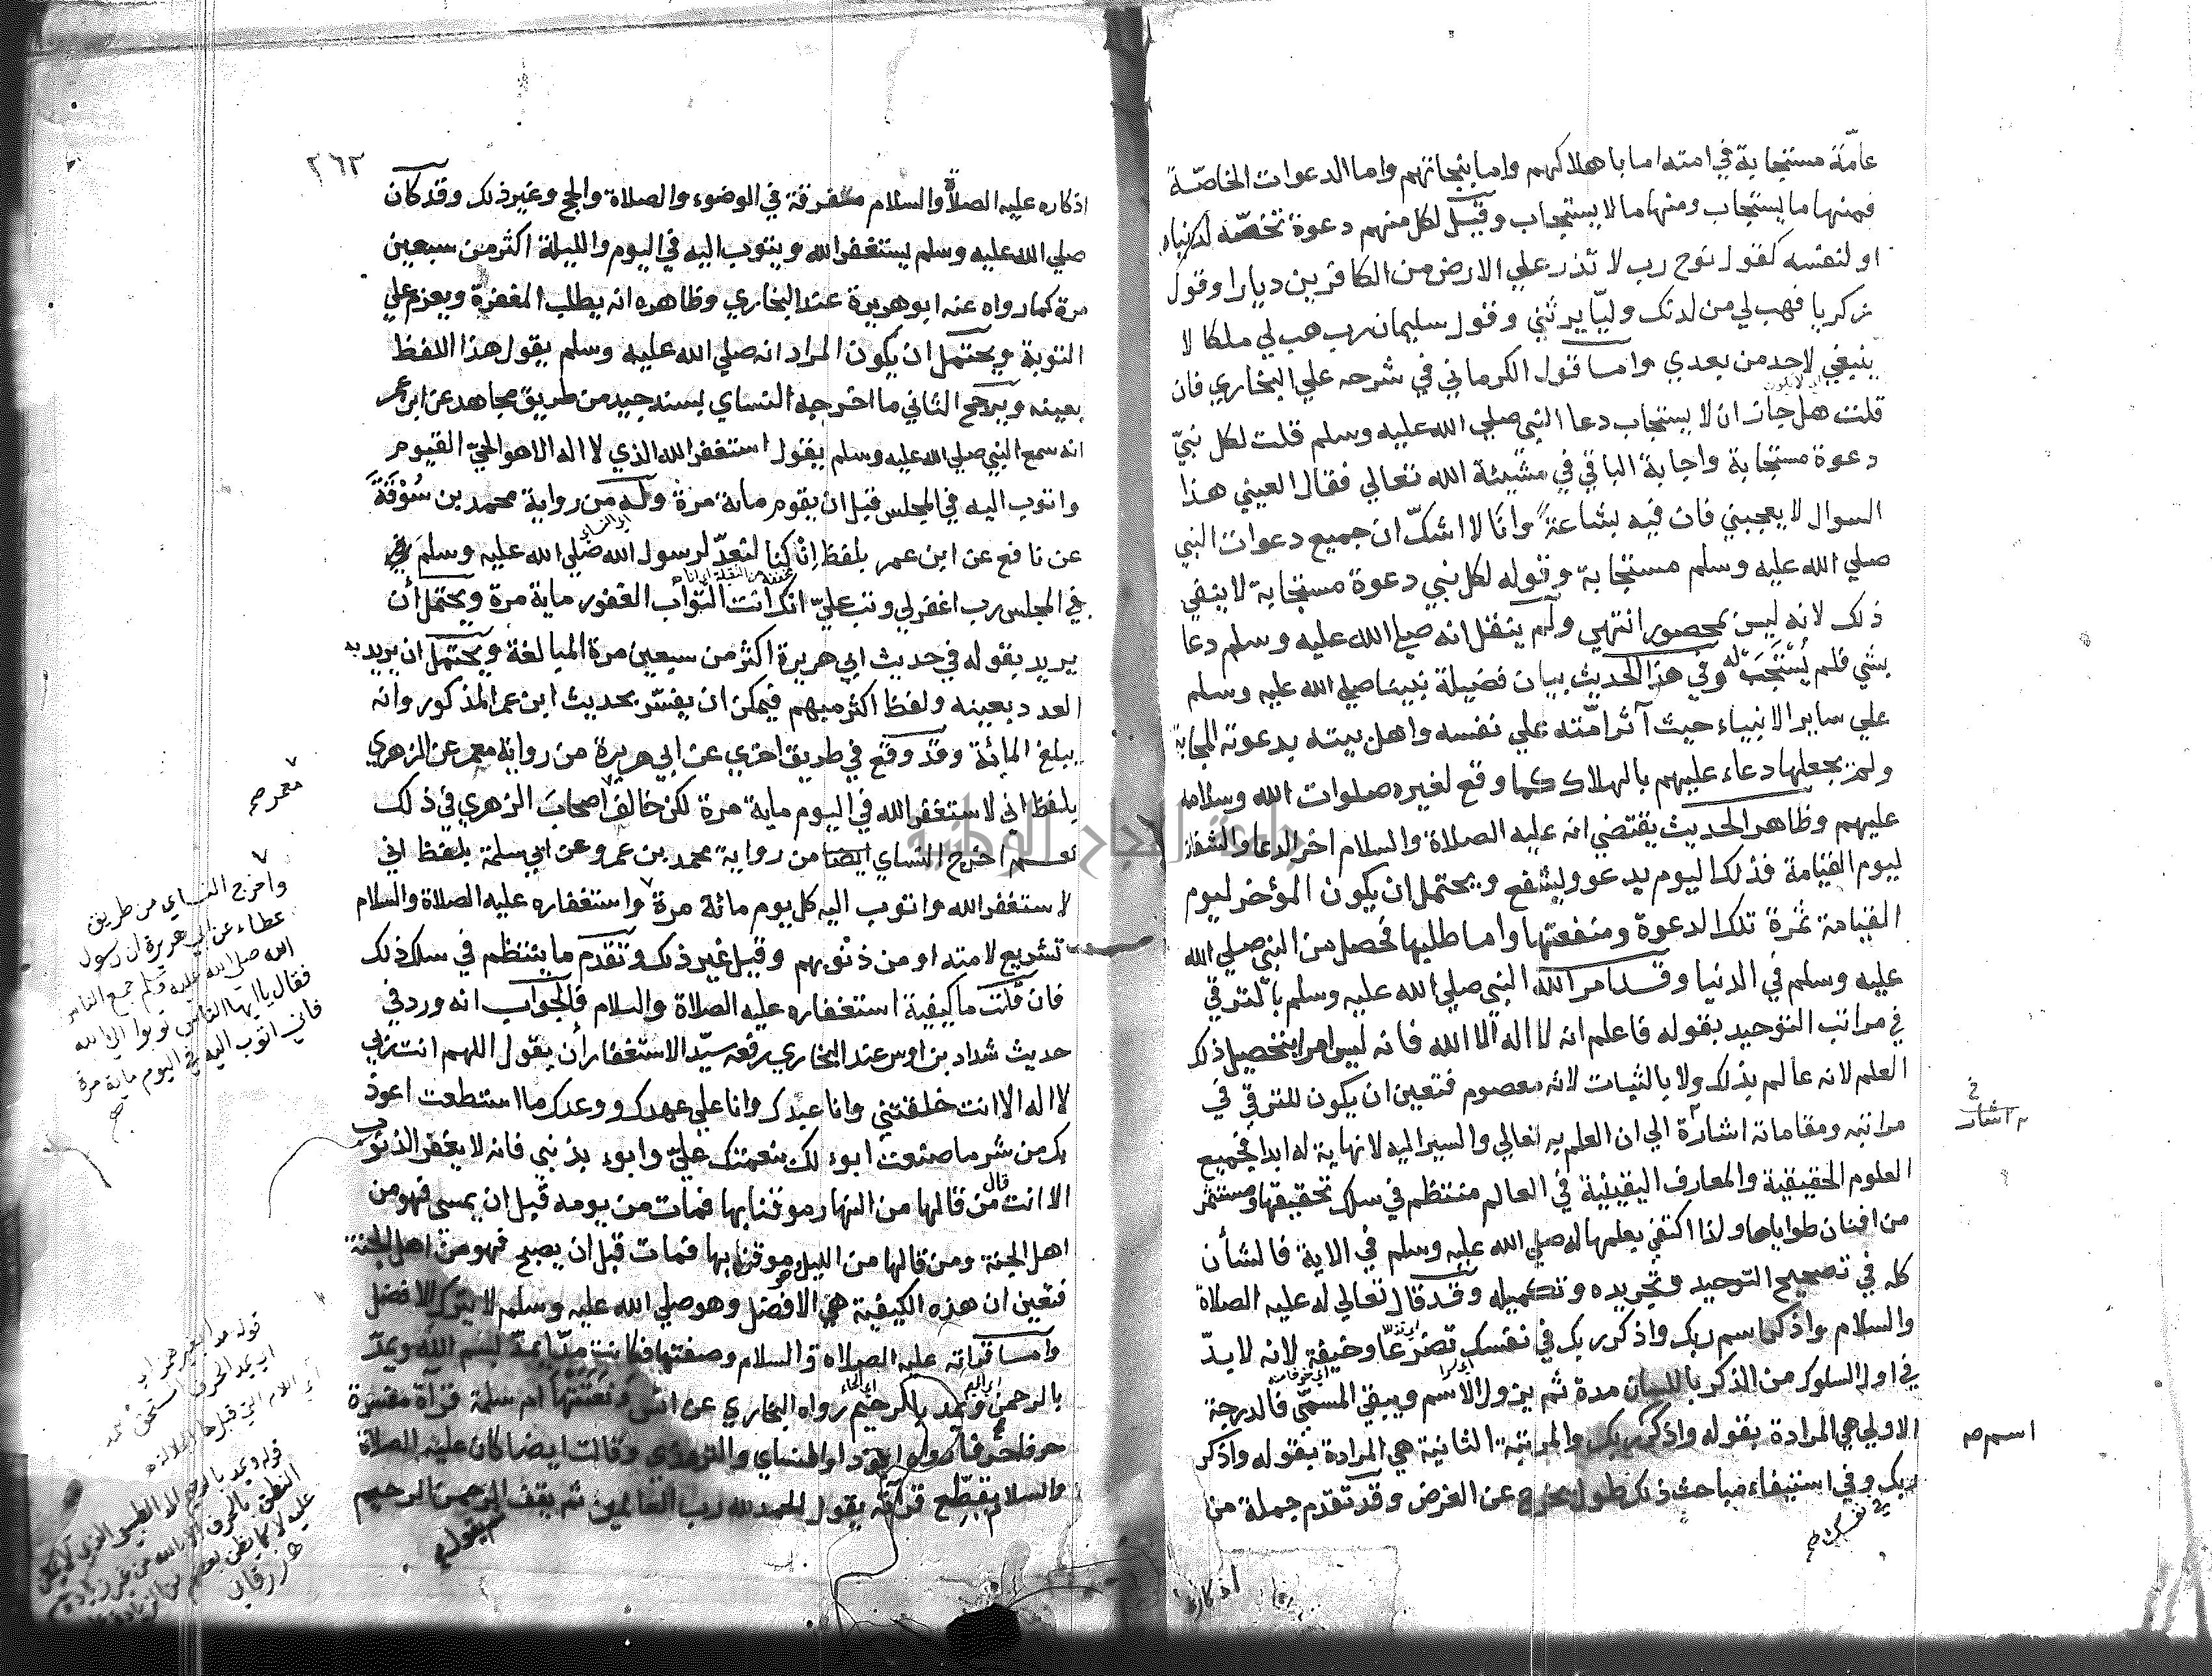 عامّة مستجابة في امته اما باهلاكهم واما بنجاتهم واما الدعوات الخاصّة
فمنها ما يستجاب ومنها ما لا يستجاب وقيل لكل منهم دعوة تخصّه لدنياه
او لنفسه كقول نوح رب لا تذر علي الارض من الكافرين ديارا وقول
زكريا فهب لي من لدنك وليّا يرثني وقول سليمان رب هب لي ملكا لا
ينبغي لاحد من بعدي واما قول الكرماني في شرحه علي البخاري فان
قلت هل جاز ان لا يستجاب دعا النبي صلي الله عليه وسلم قلت لكل نبيّ
دعوة مستجابة واجابة الباقي في مشيئة الله تعالي فقال العيني هذا
السوال لا يعجبني فان فيه بشاعة وانا لا اشكّ ان جميع دعوات النبي
صلي الله عليه وسلم مستجابة وقوله لكل نبي دعوة مستجابة لا ينفي
ذلك لانه ليس بمحصور انتهي ولم ينقل انه صلي الله عليه وسلم دعا
بشي فلم يُسْتَجَبْ له وفي هذا الحديث بيان فضيلة نبينا صلي الله عليه وسلم
علي ساير الانبياء حيث آثر امّته علي نفسه واهل بيته بدعوته المجابة
ولم يجعلها دعاء عليهم بالهلاك كما وقع لغيره صلوات الله وسلامه
عليهم وظاهر الحديث يقتضي انه عليه الصلاة والسلام اخر الدعا والشفاعة
ليوم القيامة فذلك اليوم يدعو ويشفع ويحتمل ان يكون المؤخر ليوم
القيامة ثمرة تلك الدعوة ومنفعتها واما طلبها فحصل من النبي صلي الله
عليه وسلم في الدنيا وقد امر الله النبي صلي الله عليه وسلم بالترقي
في مراتب التوحيد بقوله فاعلم انه لا اله الا الله فانه ليس امرا بتحصيل ذلك
العلم لانه عالم بذلك ولا بالثبات لانه معصوم فتعين ان يكون للترقي في
مراتبه ومقاماته اشارة الي ان العلم به تعالي والسير اليه لا نهاية له ابدا فجميع
العلوم الحقيقية والمعارف اليقينية في العالم منتظم في سلك تحقيقها ومستثمر
من افنان طوباها ولذا اكتفي بعلمها له صلي الله عليه وسلم في الاية فالشأن
كله في تصحيح التوحيد وتجريده وتكميله وقد قال تعالي له عليه الصلاة
والسلام واذكر اسم ربك واذكر ربك في نفسك تضرعا وخيفة لانه لا بدّ
في اول السلوك من الذكر باللسان مدة ثم يزول الاسم ويبقي المسمّي فالدرجة
الاولي هي المرادة بقوله واذكر ربك والمرتبة الثانية هي المرادة بقوله واذكر
ربك وفي استيفاء مباحث ذلك طول يخرج عن الغرض وقد تقدم جملة من
في نفسك صح
اذكاره
اشار
اسم صح
٢٦٢
اذكاره عليه الصلاة والسلام متفرقة في الوضوء والصلاة والحج وغير ذلك وقد كان
صلي الله عليه وسلم يستغفر الله ويتوب اليه في اليوم والليلة اكثر من سبعين
مرة كما رواه عنه ابو هريرة عند البخاري وظاهره انه يطلب المغفرة ويعزم علي
التوبة ويحتمل ان يكون المراد انه صلي الله عليه وسلم يقول هذا اللفظ
بعينه ويرجح الثاني ما اخرجه النساي بسند جيد من طريق مجاهد عن ابن عمر
انه سمع النبي صلي الله عليه وسلم يقول استغفر الله الذي لا اله الا هو الحيّ القيوم
واتوب اليه في المجلس قبل ان يقوم ماية مرة وله من رواية محمد بن سُوْقَةَ
عن نافع عن ابن عمر بلفظ اِنْ كنا لنعدّ لرسول الله صلي الله عليه وسلم
في المجلس رب اغفر لي وتب عليّ انك انت التواب الغفور ماية مرة ويحتمل أن
يريد بقوله في حديث ابي هريرة اكثر من سبعين مرة المبالغة ويحتمل ان يريد به
العدد بعينه ولفظ اكثر مبهم فيمكن ان يفسّر بحديث ابن عمر المذكور وانه
يبلغ المائة وقد وقع في طريق اخري عن ابي هريرة من رواية معمر عن الزهري
بلفظ اني لاستغفر الله في اليوم ماية مرة لكن خالف اصحابَ الزهري في ذلك
نعم اخرج النساي ايضا من رواية محمد بن عمرو عن ابي سلمة بلفظ اني
لاستغفر الله واتوب اليه كل يوم مائة مرة واستغفاره عليه الصلاة والسلام
تشريع لامته او من ذنوبهم وقيل غير ذلك وتقدم ما ينتظم في سلك ذلك
فان قلت ما كيفية استغفاره عليه الصلاة والسلام فالجواب انه ورد في
حديث شداد بن اوس عند البخاري رفعه سيّد الاستغفار أن يقول اللهم انت ربي
لا اله الا انت خلقتني وانا عبدك وانا علي عهدك ووعدك ما استطعت اعوذ
بك من شر ما صنعت ابوء لك بنعمتك عليّ وابوء بذنبي فانه لا يغفر الذنوب
الا انت قال من قالها من النهار موقنا بها فمات من يومه قبل ان يمسي فهو من
اهل الجنة ومن قالها من الليل موقنا بها فمات قبل ان يصبح فهو من اهل الجنة
فتعين ان هذه الكيفية هي الافضل وهو صلي الله عليه وسلم لا يترك الافضل
واما قراته عليه الصلاة والسلام وصفتها فكانت مدّا يمدّ ببسم الله ويمدّ
بالرحمن ويمد بالرحيم رواه البخاري عن انس ونعتتها ام سلمة قرآة مفسرة
حرفا حرفا رواه ابو داود والنساي والترمذي وقالت ايضا كان عليه الصلاة
والسلام يقطّع قرآته يقول الحمد لله رب العالمين ثم يقف الرحمن الرحيم
ثم يقول
معمر صح
واخرج النساي من طريق
عطاء عن ابي هريرة ان رسول
الله صلي الله عليه وسلم جمع الناس
فقال يا ايها الناس توبوا الي الله
فاني اتوب اليه في اليوم ماية مرة
صح